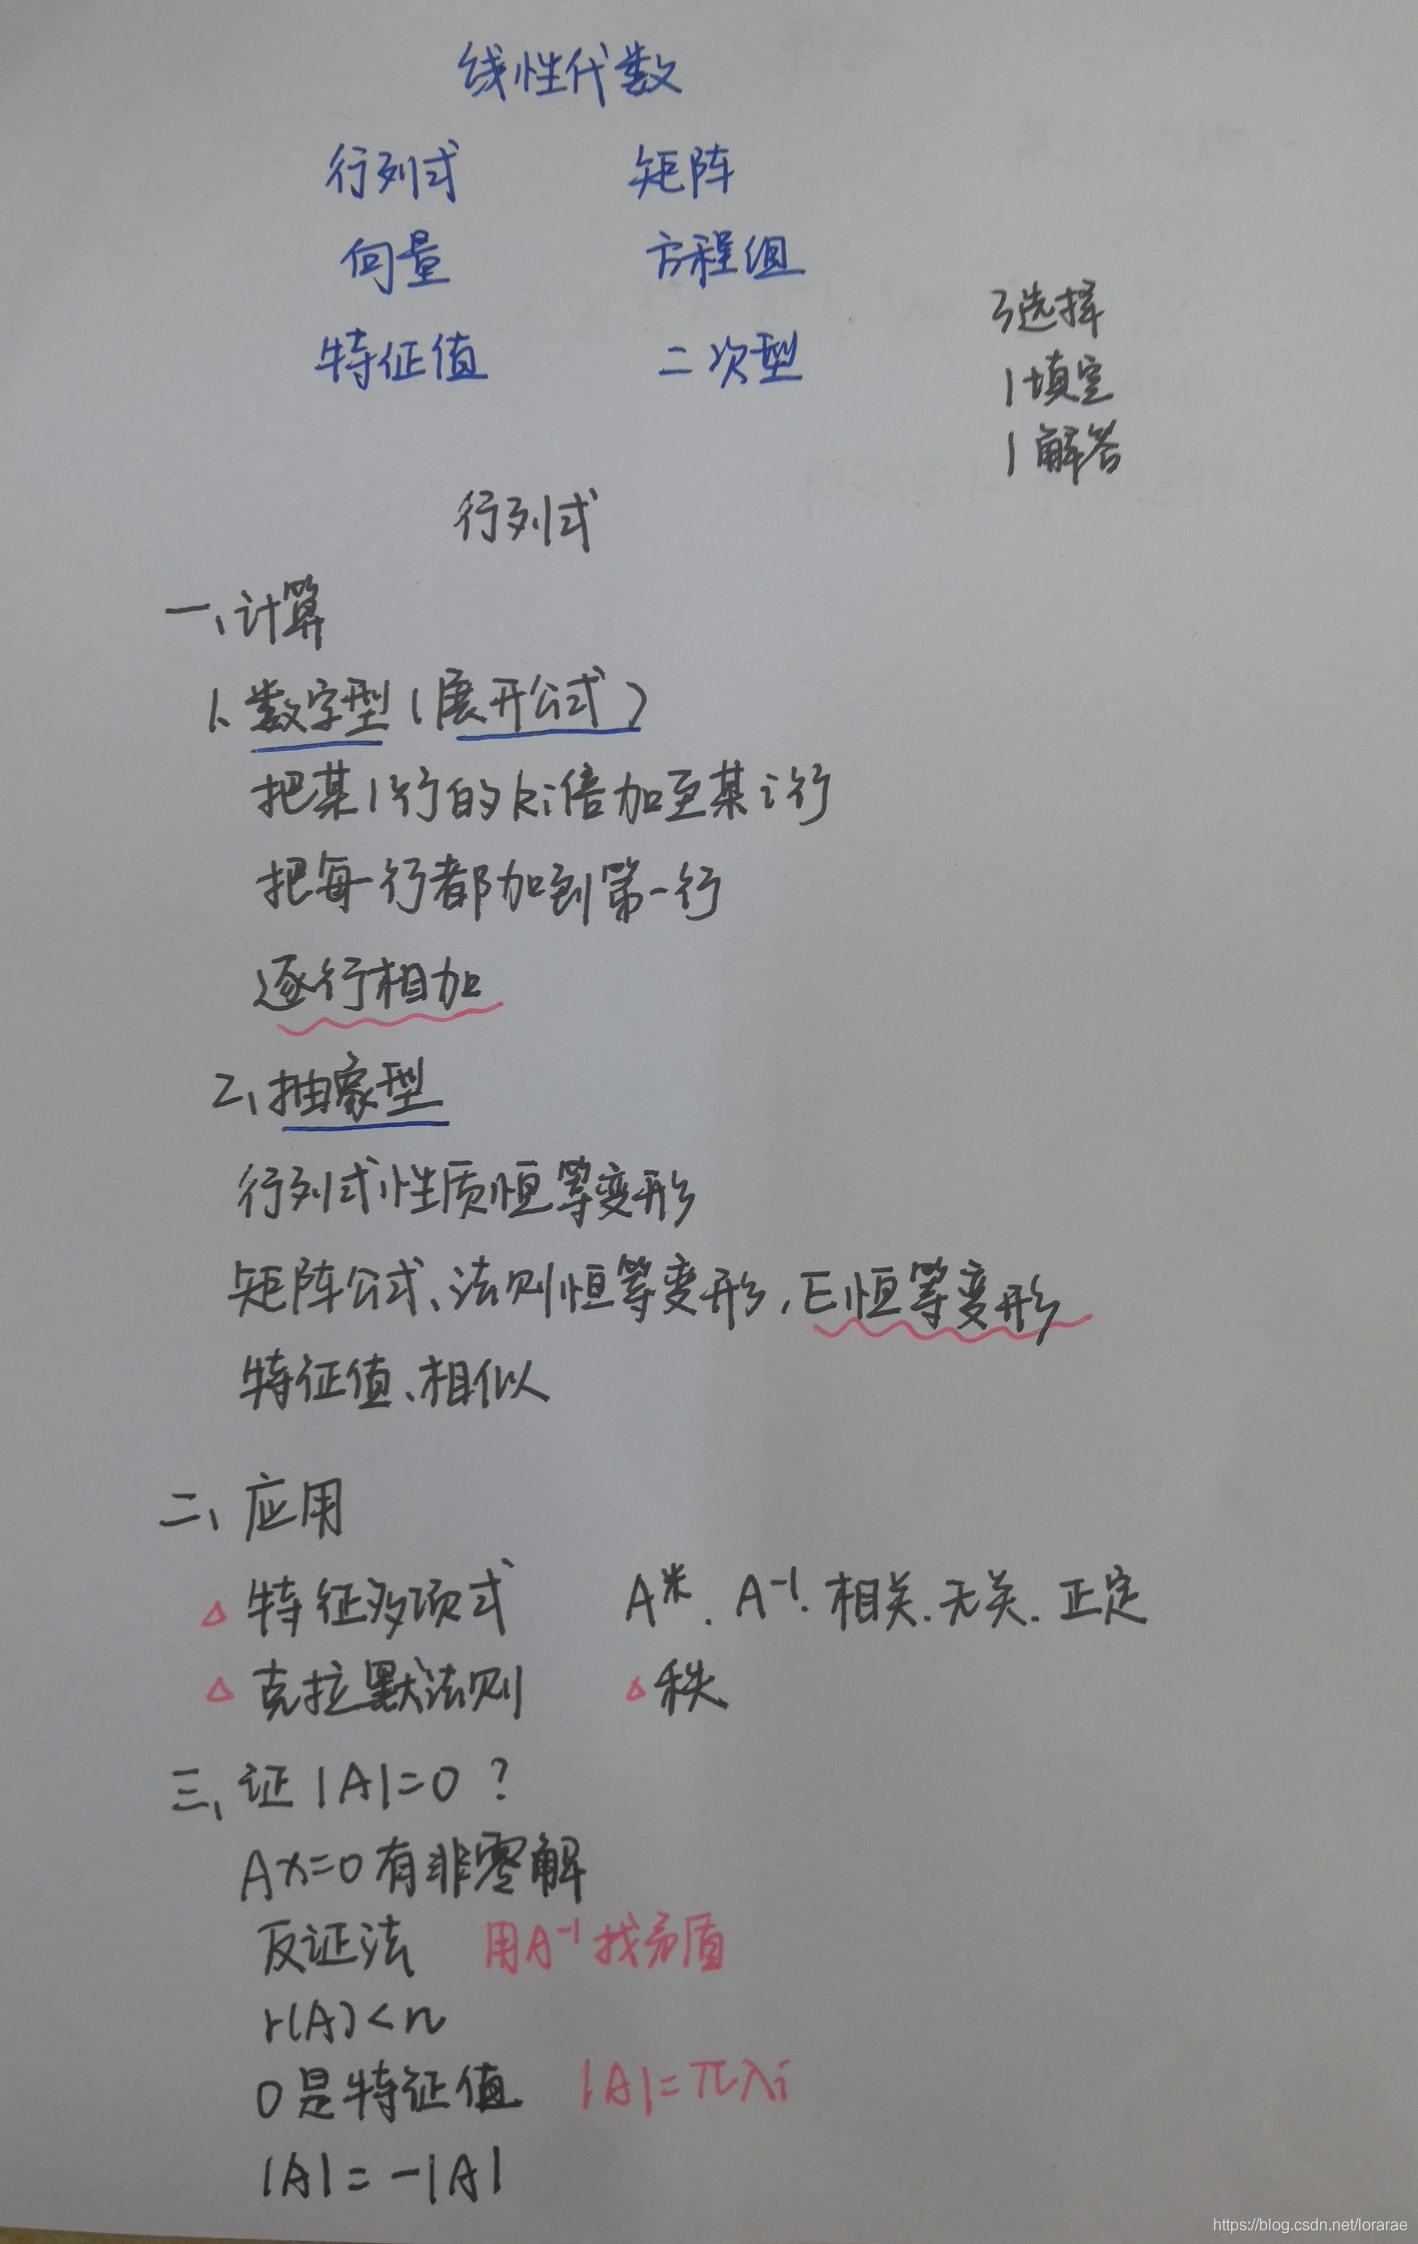 线性代数
行列式 矩阵
向量 方程组
特征值 二次型
3选择
1填空
1解答
行列式
一、计算
1、数字型(展开公式)
把某1行的ki倍加至某i行
把每一行都加到第一行
逐行相加
2、抽象型
行列式性质恒等变形
矩阵公式、法则恒等变形,E恒等变形
特征值、相似
二、应用
△ 特征多项式 A*. A⁻¹. 相关. 无关. 正定
△ 克拉默法则 △ 秩
三、证|A|=0?
Ax=0有非零解
反证法 用A⁻¹找矛盾
r(A)<n
0是特征值 |A|=πλi
|A|=-|A|
https://blog.csdn.net/lorarae